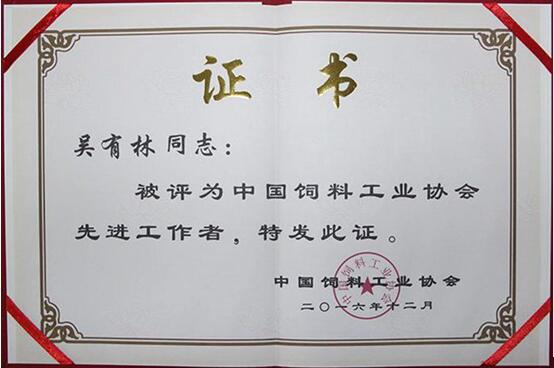 证 书
吴有林同志：
被评为中国饲料工业协会
先进工作者，特发此证。
中国饲料工业协会
二〇一六年十二月
中国饲料工业协会